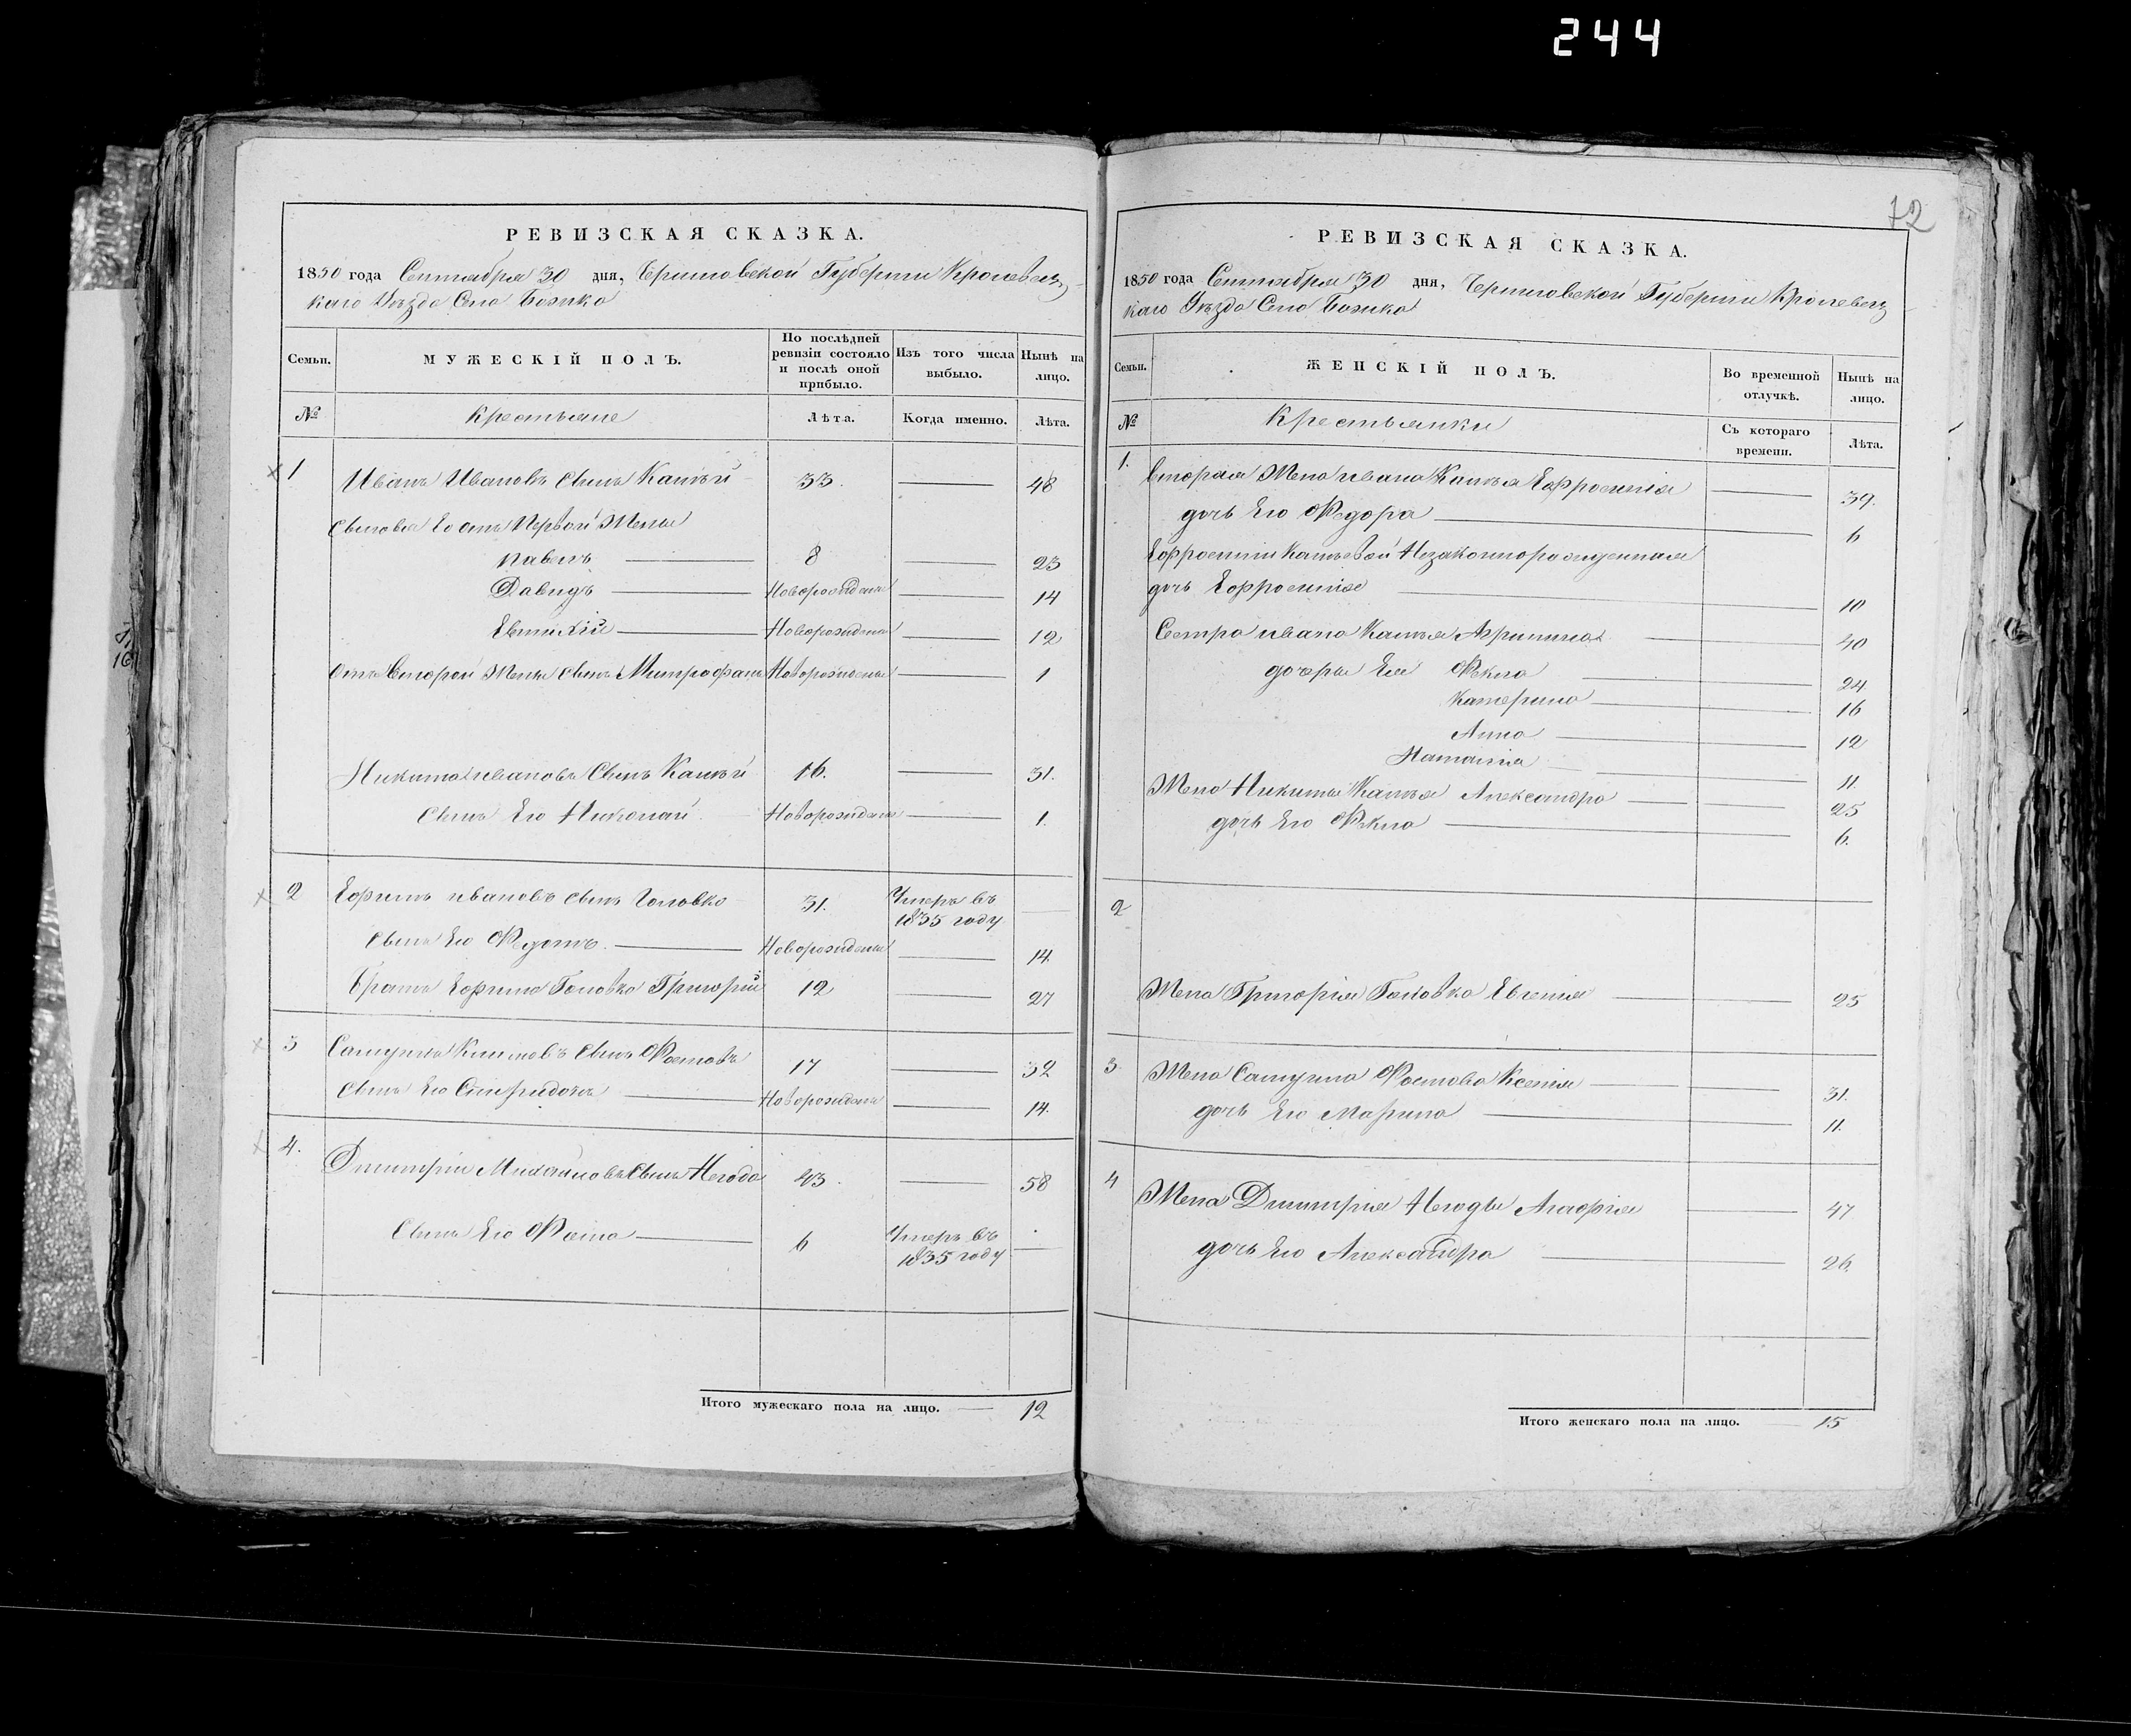 244
72
РЕВИЗСКАЯ СКАЗКА.
1850 года Сентября 30 дня, Черниговской Губернии Кролевец
каго Уезда Село
Семьи.
МУЖЕСКІЙ ПОЛЪ.
По послѣдней ревизіи состояло и послѣ оной прибыло.
Изъ того числа выбыло.
Нынѣ на лицо.
№ Крестьяне Лѣта. Когда именно. Лѣта.
1 Иванъ Ивановъ Сынъ 33. 48
Сыновья Его отъ Первой Жены
Павелъ 8 23
Давидъ Новорожденъ 14
Евтихій Новорожденъ 12
Отъ Второй Жены Сынъ Митрофанъ Новорожденъ 1
Никита Ивановъ Сынъ 16. 31.
Сынъ Его Николай Новорожденъ 1.
2 Ефимъ Ивановъ Сынъ Головко 31. Умеръ въ
1835 году
Сынъ Его Федотъ Новорожденъ 14.
Братъ Ефима Головка Григорій 12 27
3 Климовъ Сынъ 17 32
Сынъ Его Спиридонъ Новорожденъ 14.
4. Дмитрій Михайловъ Сынъ Негода 43. 58
Сынъ Его 6 Умеръ въ
1835 году
Итого мужескаго пола на лицо. 12
РЕВИЗСКАЯ СКАЗКА.
1850 года Сентября 30 дня, Черниговской Губерніи Кролевец
каго Уезда Село
Семьи.
ЖЕНСКІЙ ПОЛЪ.
Во временной отлучкѣ.
Нынѣ на лицо.
№ Крестьянки Съ котораго времени. Лѣта.
1. Вторая Жена Ивана Ефросинія 39.
дочь Его Федора 6
Ефросиніи Незаконнорожденная
дочь Ефросинія 10
Сестра Ивана 40
дочери Ея Фекла 24
Катерина 16
Анна 12
Наталия 11.
Жена Никиты Александра 25
дочь Его Фекла 6.
2
Жена Григорія Головка Евгенія 25
3. Жена Ксенія 31.
дочь Его Марина 11.
4 Жена Дмитрія Негоды Агафія 47
дочь Его Александра 26.
Итого женскаго пола на лицо. 15